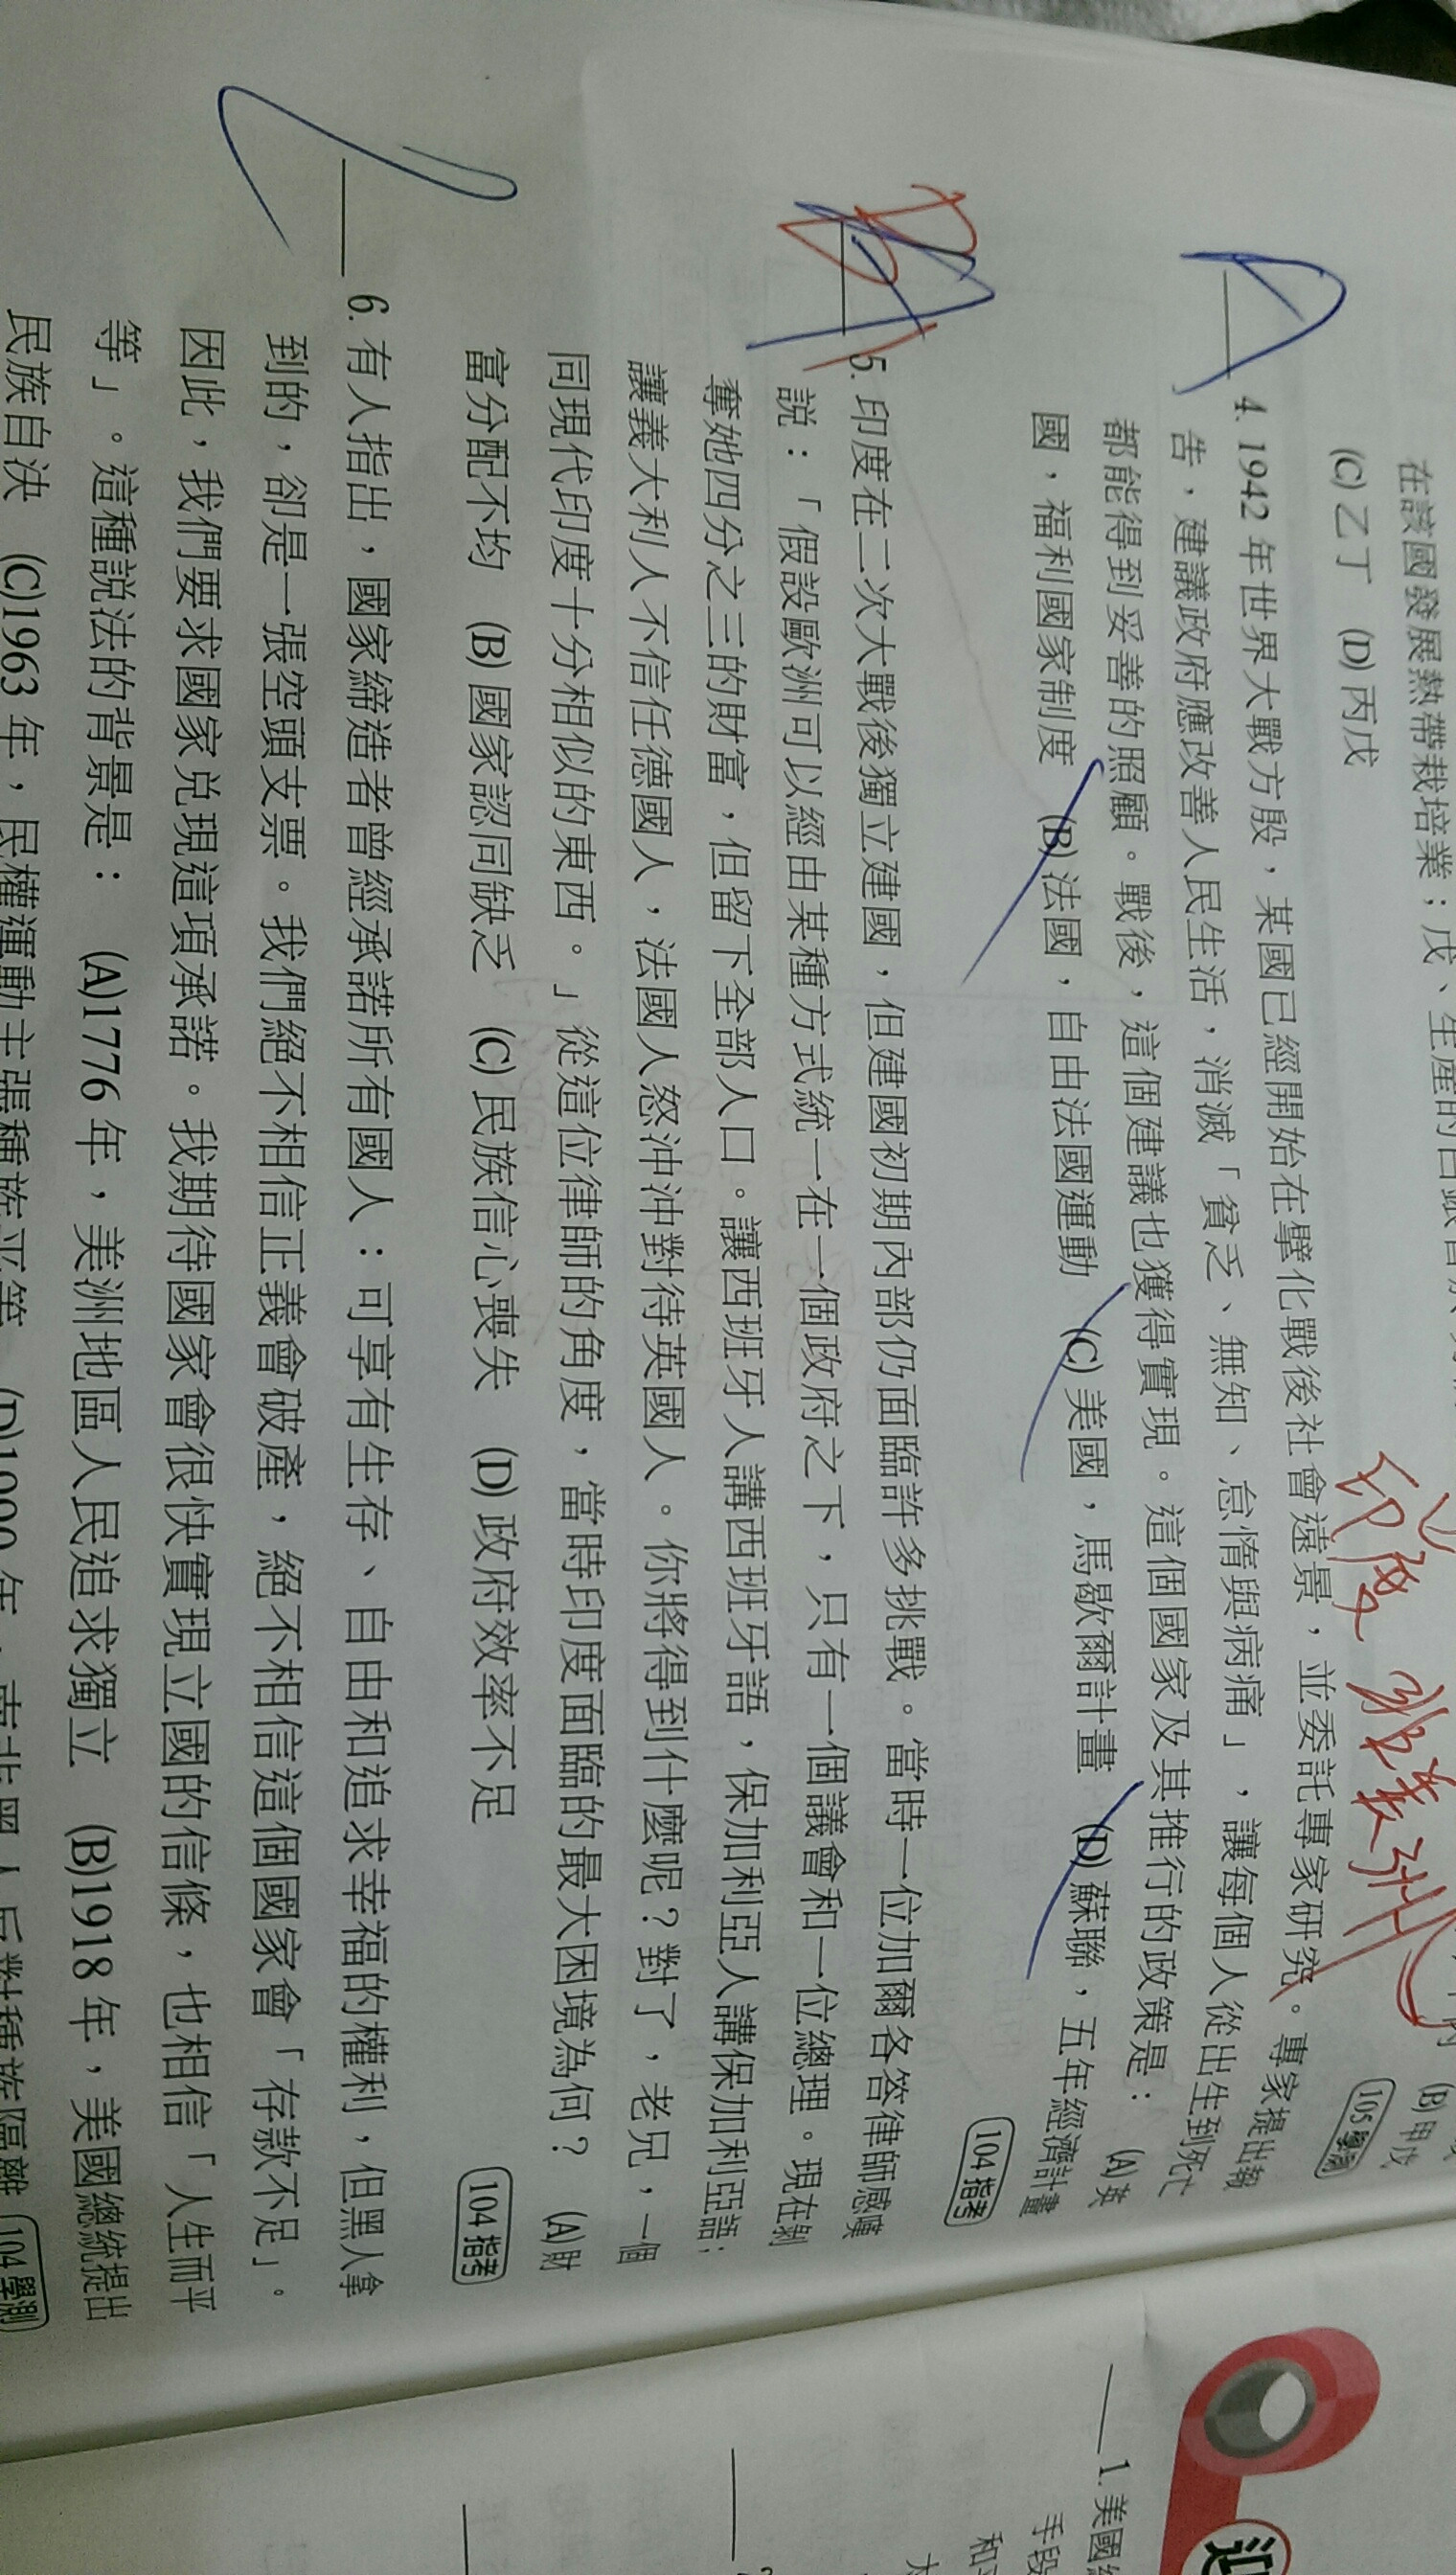 在該國發展熱帶栽培業；戊、生產的
(B)甲戊
(C)乙丁 (D)丙戊
105學測
印度
A
4. 1942年世界大戰方殷，某國已經開始在擘化戰後社會遠景，並委託專家研究。專家提出報
告，建議政府應改善人民生活，消滅「貧乏、無知、怠惰與病痛」，讓每個人從出生到死亡
都能得到妥善的照顧。戰後，這個建議也獲得實現。這個國家及其推行的政策是： (A)英
國，福利國家制度 (B)法國，自由法國運動 (C)美國，馬歇爾計畫 (D)蘇聯，五年經濟計畫
104指考
B
5. 印度在二次大戰後獨立建國，但建國初期內部仍面臨許多挑戰。當時一位加爾各答律師感嘆
說：「假設歐洲可以經由某種方式統一在一個政府之下，只有一個議會和一位總理。現在剝
奪她四分之三的財富，但留下全部人口。讓西班牙人講西班牙語，保加利亞人講保加利亞語；
讓義大利人不信任德國人，法國人怒沖沖對待英國人。你將得到什麼呢？對了，老兄，一個
同現代印度十分相似的東西。」從這位律師的角度，當時印度面臨的最大困境為何？ (A)財
富分配不均 (B)國家認同缺乏 (C)民族信心喪失 (D)政府效率不足
104指考
6. 有人指出，國家締造者曾經承諾所有國人：可享有生存、自由和追求幸福的權利，但黑人拿
到的，卻是一張空頭支票。我們絕不相信正義會破產，絕不相信這個國家會「存款不足」。
因此，我們要求國家兌現這項承諾。我期待國家會很快實現立國的信條，也相信「人生而平
等」。這種說法的背景是： (A)1776年，美洲地區人民追求獨立 (B)1918年，美國總統提出
民族自決 (C)1963年，民權運動主張種族平等 (D)1990年，南非黑人反對種族隔離
104學測
迎
1. 美國
手段
和